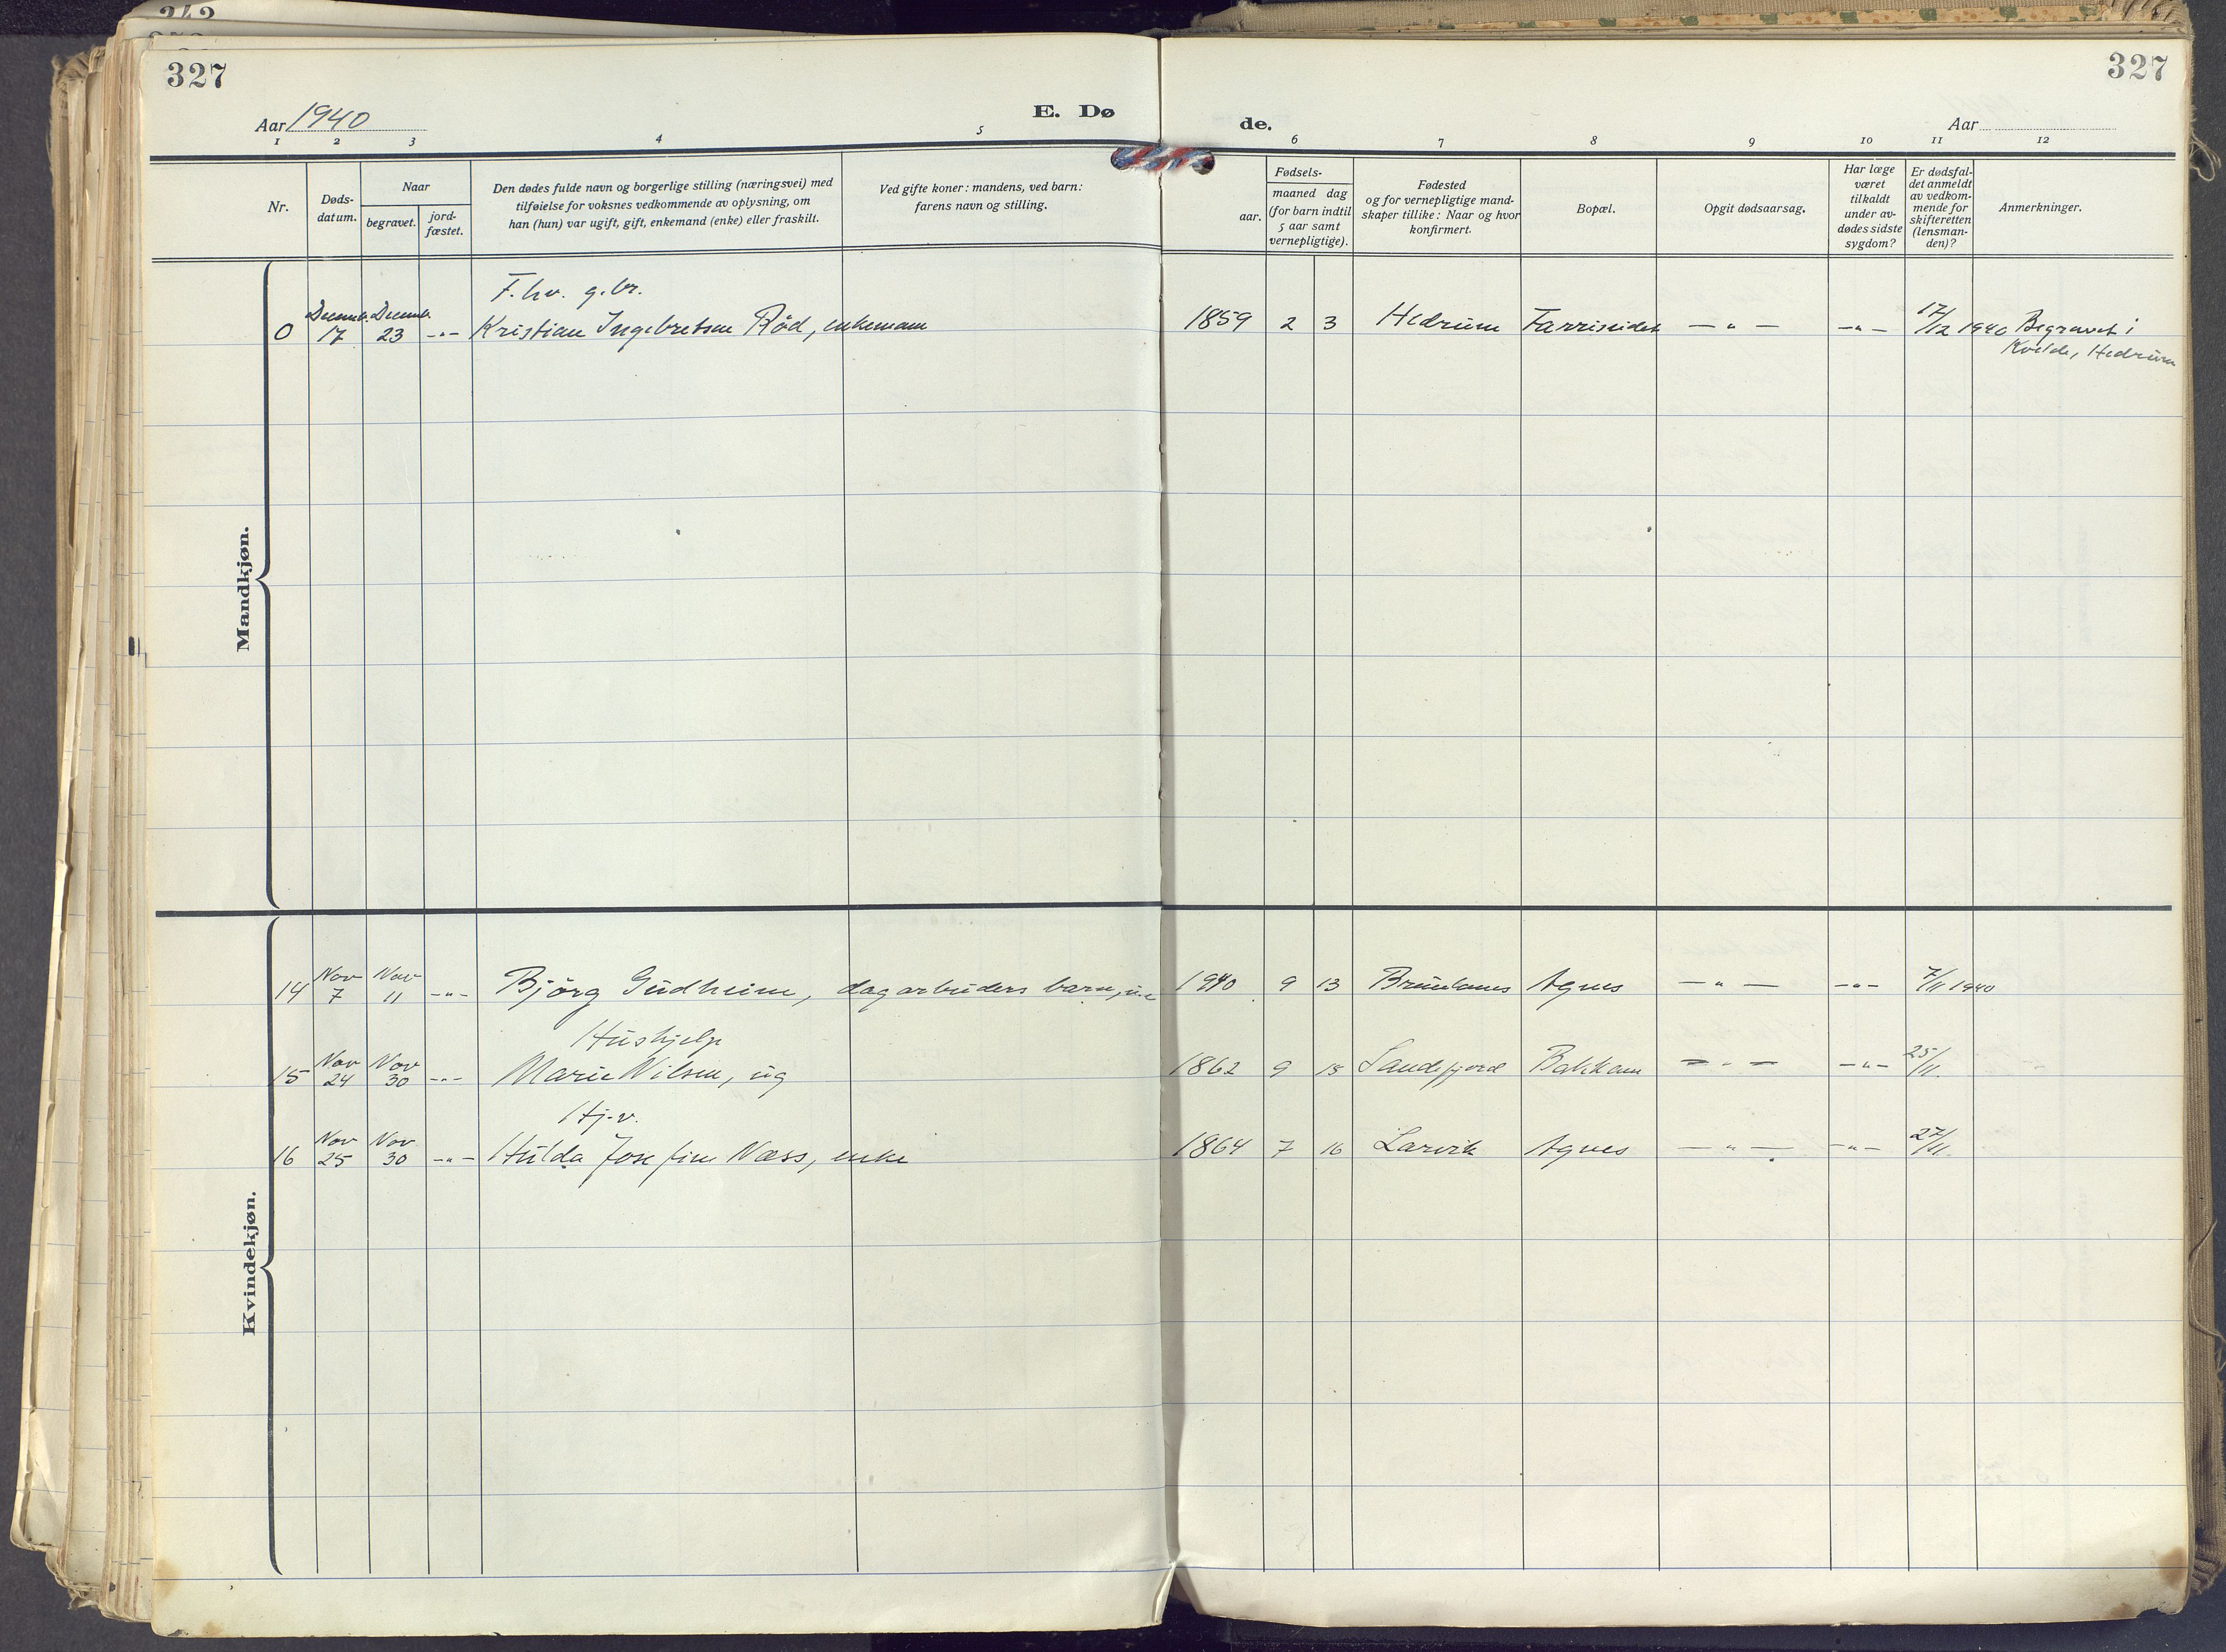 343
327
327
Aar 1940
E. Dø
de.
Aar
1 2 3 4 5 6 7 8 9 10 11 12
Nr.
Døds-
datum.
Naar
begravet.
jord-
fæstet.
Den dødes fulde navn og borgerlige stilling (næringsvei) med
tilføielse for voksnes vedkommende av oplysning, om
han (hun) var ugift, gift, enkemand (enke) eller fraskilt.
Ved gifte koner: mandens, ved barn:
farens navn og stilling.
Fødsels-
aar.
maaned dag
(for barn indtil
5 aar samt
vernepligtige).
Fødested
og for vernepligtige mand-
skaper tillike: Naar og hvor
konfirmert.
Bopæl.
Opgit dødsaarsag.
Har læge
været
tilkaldt
under av-
dødes sidste
sygdom?
Er dødsfal-
det anmeldt
av vedkom-
mende for
skifteretten
(lensman-
den)?
Anmerkninger.
Mandkjøn.
F. hv. g.br.
0 Decemb. 17 Decemb. 23 -"- Kristian Ingebretsen Röd, enkemann 1859 2 3 Hedrum Farriseidet - " - -"- 17/12 1940 Begravet i
Kvelde, Hedrum
Kvindekjøn.
14 Nov 7 Nov 11 -"- Bjørg Gudheim, dagarbeiders barn, 1940 9 13 Brunlanes Agnes - " - -"- 7/11 1940
Hushjelp
15 Nov 24 Nov 30 -"- Marie Nilsen, ug 1862 9 15 Sandefjord Bakkane - " - -"- 25/11.
Hj.v.
16 Nov 25 Nov 30 -"- Hulda Josefine Næss, enke 1864 7 16 Larvik Agnes - " - -"- 27/11.